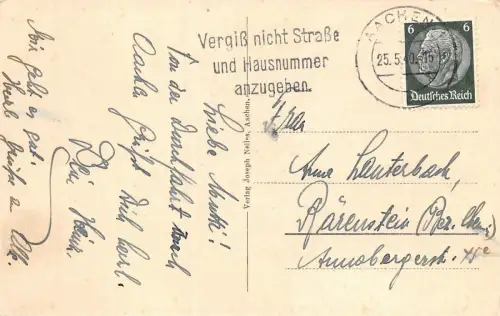 Vergiß nicht Straße
und Hausnummer
anzugeben.
AACHEN
25.5.40.-15
6 6
Deutsches Reich
Liebe Mutti!
Von der Durchfahrt durch
Aachen grüßt Dich herzl.
Dein Heinz.
Mir geht es gut.
Herzl. Grüße a. Alle.
Verlag Joseph Nelles, Aachen.
Frau
Anna Lauterbach,
Bärenstein (Bez. Chem.)
Annabergerstr.